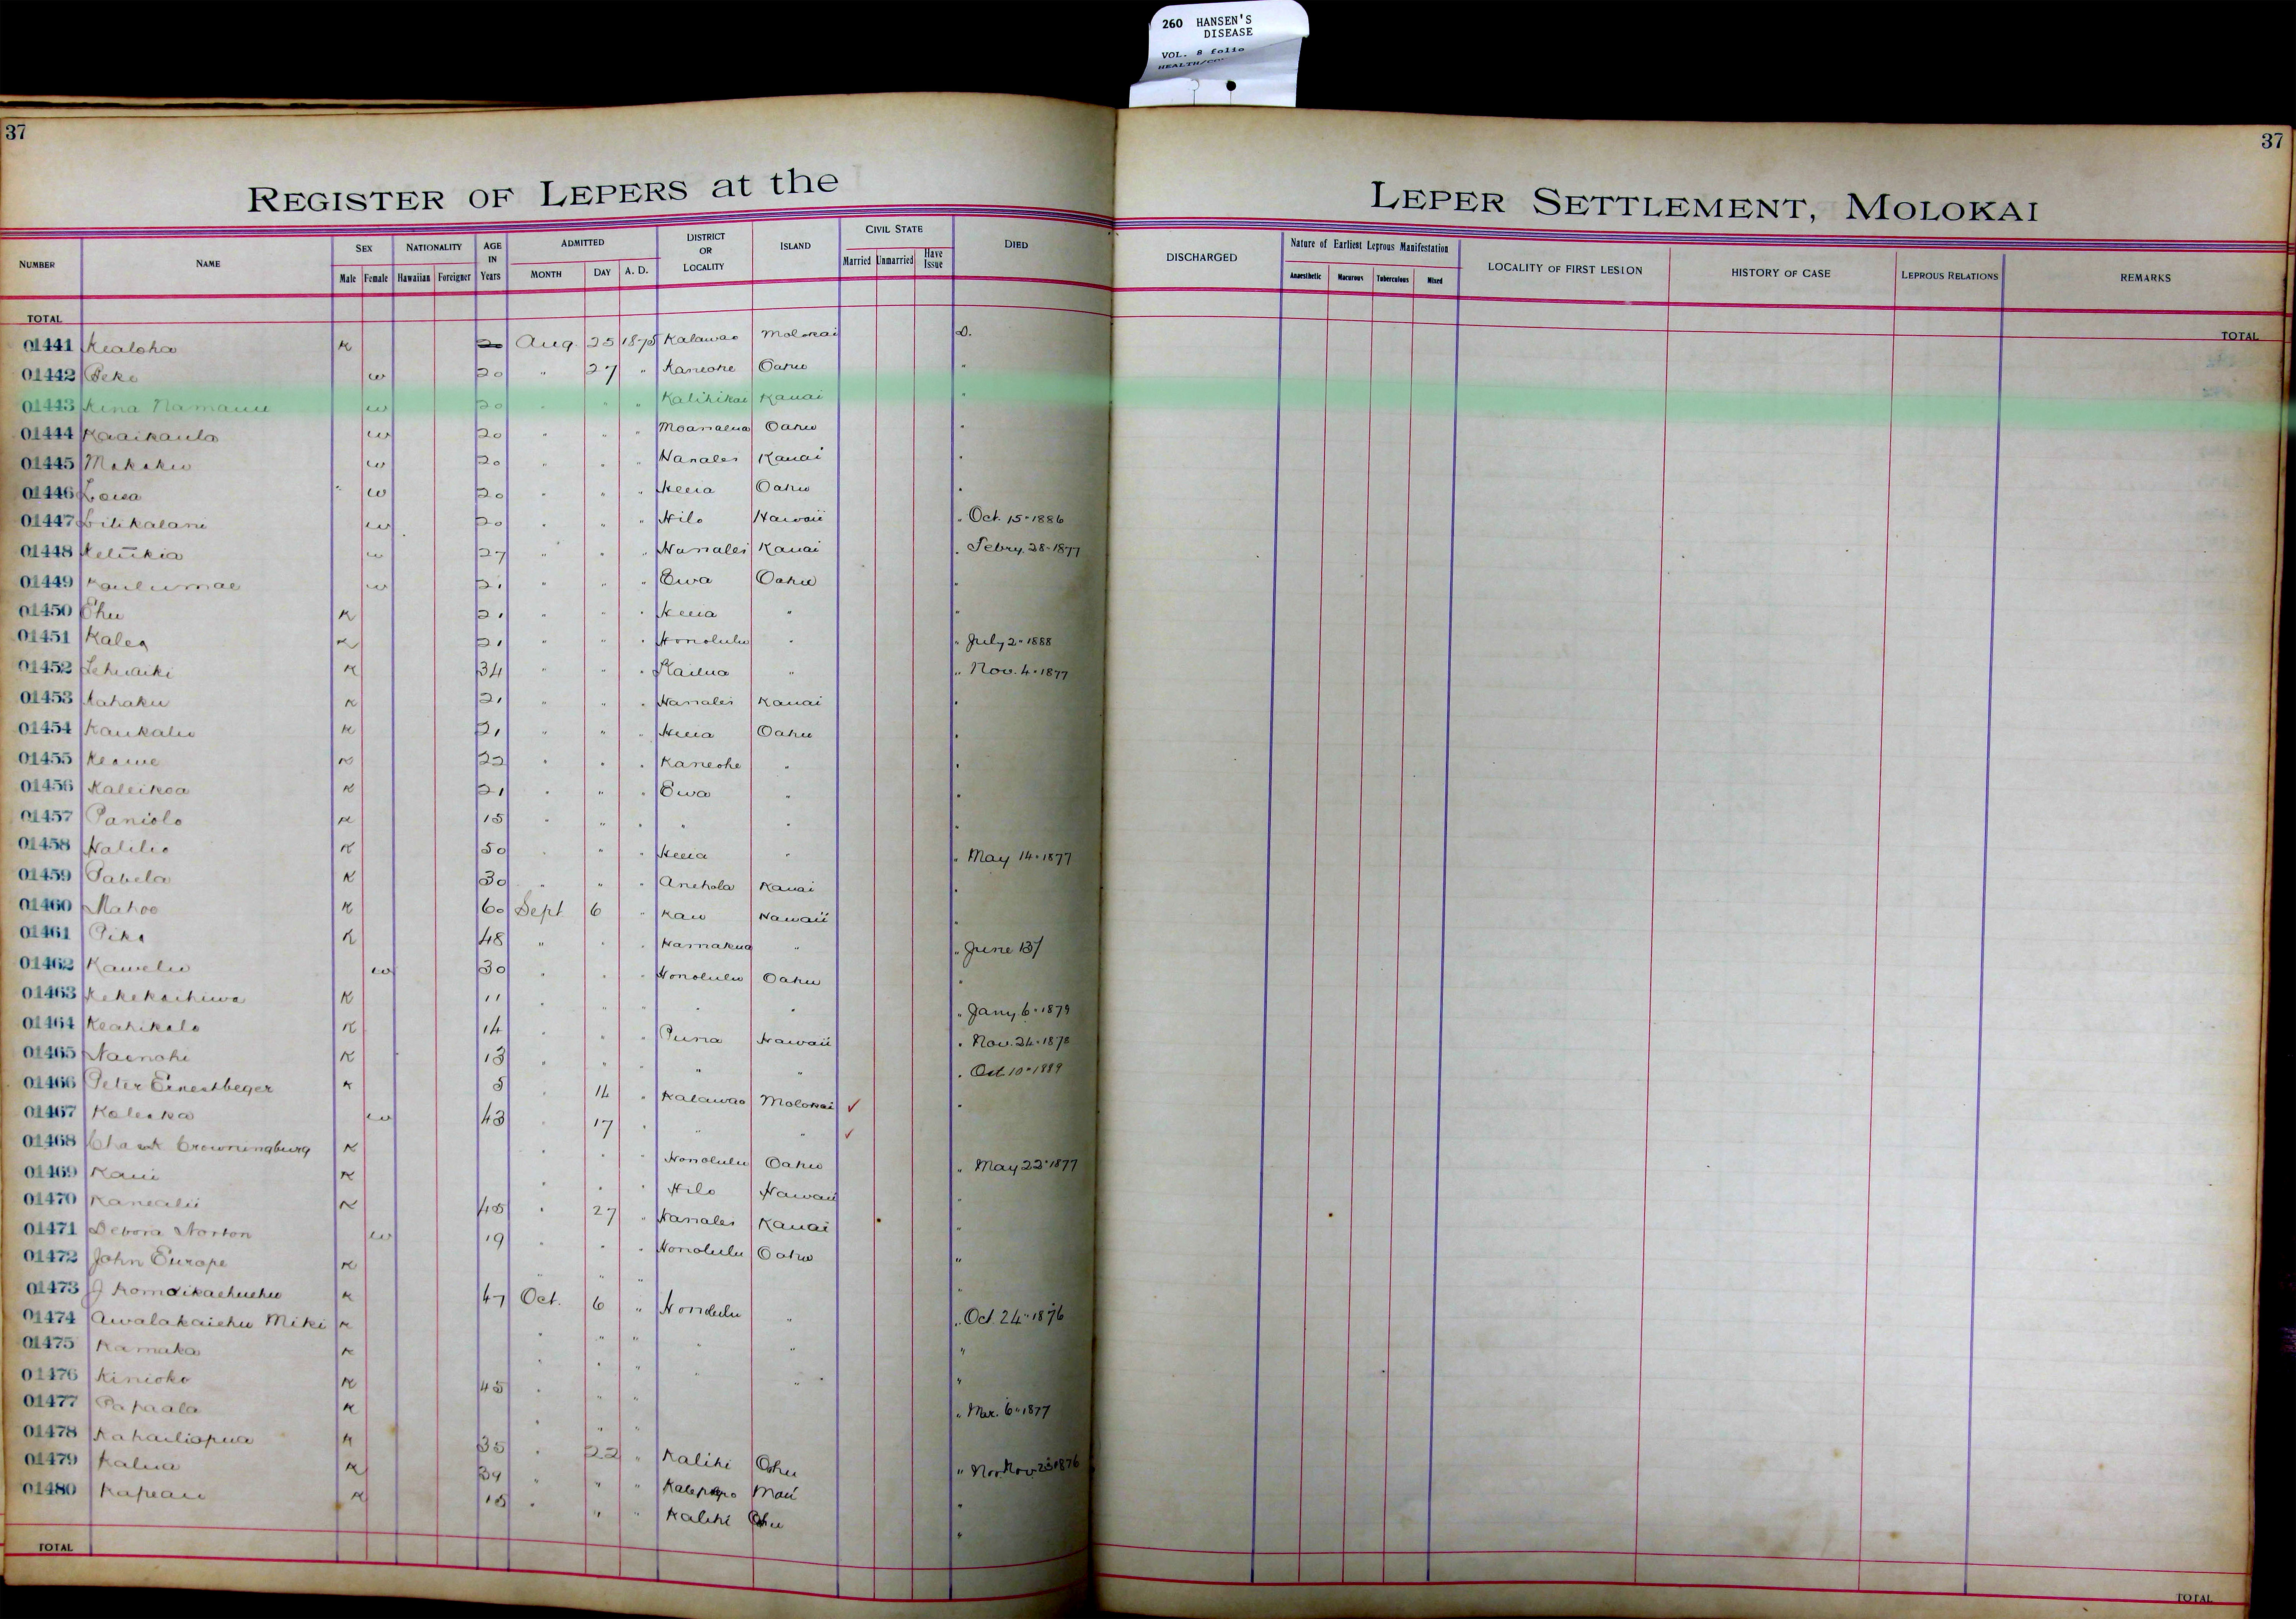 260 HANSEN'S
DISEASE
VOL. 8 folio
37 37
REGISTER OF LEPERS at the LEPER SETTLEMENT, MOLOKAI
NUMBER NAME SEX NATIONALITY AGE IN Years ADMITTED DISTRICT OR LOCALITY ISLAND CIVIL STATE DIED DISCHARGED Nature of Earliest Leprous Manifestation LOCALITY OF FIRST LESION HISTORY OF CASE LEPROUS RELATIONS REMARKS
Male Female Hawaiian Foreigner MONTH DAY A. D. Married Unmarried Have Issue Anaesthetic Macurous Tuberculous Mixed
TOTAL TOTAL
01441 Kealoha K 20 Aug. 25 1875 Kalawao Molokai D.
01442 Peke w 20 " 27 " Kaneohe Oahu "
01443 Kina Namauu w 20 " " " Kalihikai Kauai "
01444 Kaaikaula w 20 " " " Moanalua Oahu "
01445 w 20 " " " Hanalei Kauai "
01446 Loisa w 20 " " " Heeia Oahu "
01447 Lilikalani w 20 " " " Hilo Hawaii " Oct. 15-1886
01448 Keliikia w 27 " " " Hanalei Kauai " Febry. 28-1877
01449 Kaulumae w 21 " " " Ewa Oahu "
01450 Ehu K 21 " " " Heeia " "
01451 Kalea K 21 " " " Honolulu " " July 2-1888
01452 Lehuaiki K 34 " " " Kailua " " Nov. 4-1877
01453 Kahaku K 21 " " " Hanalei Kauai "
01454 Kaukaliu K 21 " " " Heeia Oahu "
01455 Keawe K 22 " " " Kaneohe " "
01456 Kaleikoa K 21 " " " Ewa " "
01457 Paniolo K 15 " " " " " "
01458 Halilio K 50 " " " Heeia " " May 14-1877
01459 Pabela K 30 " " " Anehola Kauai "
01460 Mahoe K 60 Sept 6 " Kau Hawaii "
01461 Piko K 48 " " " Hamakua " " June 137
01462 Kawelu w 30 " " " Honolulu Oahu "
01463 K 11 " " " " " " Jany. 6-1879
01464 Keahikolo K 14 " " " Puna Hawaii " Nov. 24-1878
01465 Nainohi K 13 " " " " " " Oct 10-1889
01466 Peter Ernestbeger K 5 " 14 " Kalawao Molokai ✓ "
01467 Kaleika w 43 " 17 " " " ✓
01468 Crowningburg K " " " Honolulu Oahu " May 22-1877
01469 Kaui K " " " Hilo Hawaii "
01470 Kanealii K 45 " 27 " Hanalei Kauai "
01471 Debora Norton w 19 " " " Honolulu Oahu "
01472 John Europe K " " " "
01473 J Komoikaehuehu K 47 Oct. 6 " Honolulu " " Oct. 24-1876
01474 Awalakaiehu Miki K " " " " " "
01475 Kamaka K " " " " " "
01476 Kinioko K 45 " " " " Mar. 6-1877
01477 Papaala K " "
01478 Kahailiopua K 35 " 22 " Kalihi Oahu " Nov 23 1876
01479 Kalua K 34 " " " Kalepolepo Maui "
01480 Kapeau K 15 " " " Kalihi Oahu "
TOTAL TOTAL